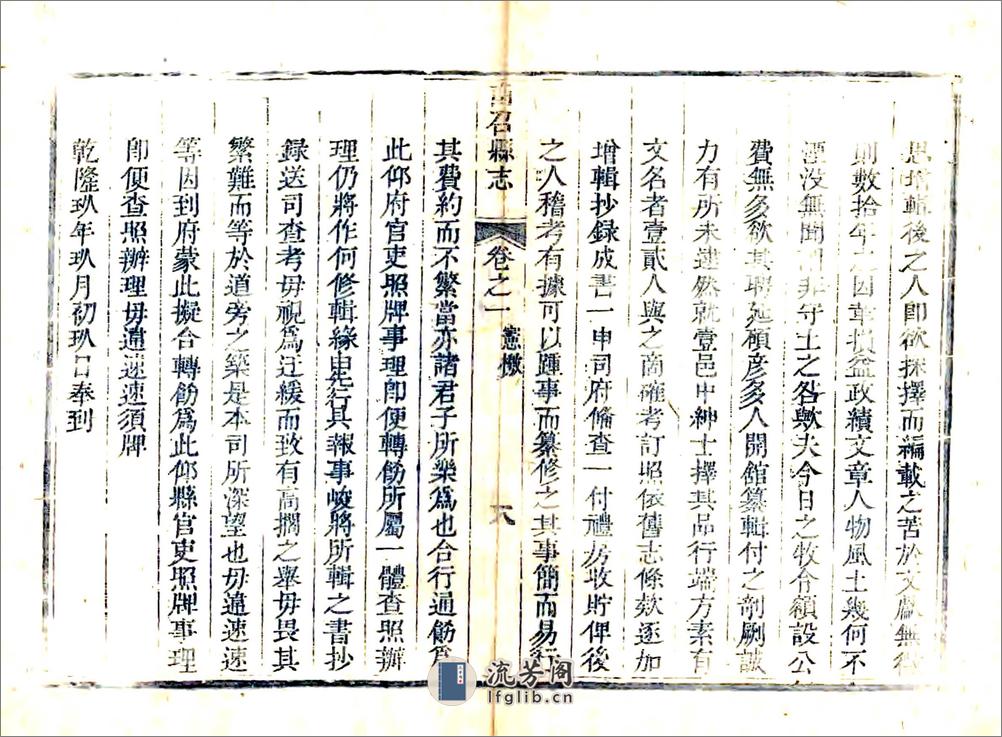 思增輯後之人即欲採擇而編載之苦於文獻無徵
則數拾年之因革損益政績文章人物風土幾何不
湮沒無聞非守土之各歟夫今日之牧令額設公
費無多欲其聘延碩彥多人開館纂輯付之剞劂誠
力有所未逮然就壹邑中紳士擇其品行端方素有
文名者壹貳人與之商確考訂照依舊志條欵逐加
增輯抄録成書一申司府備查一付禮房收貯俾後
之人稽考有據可以踵事而纂修之其事簡而易行
其費約而不繁當亦諸君子所樂爲也合行通飭爲
此仰府官吏照牌事理卽便轉飭所屬一體查照辦
理仍將作何修輯緣由先行具報事峻將所輯之書抄
録送司查考毋視爲迂緩而致有高擱之舉毋畏其
繁難而等於道旁之築是本司所深望也毋違速速
等因到府蒙此擬合轉飭爲此仰縣官吏照牌事理
卽便查照辦理毋違速速須牌
乾隆玖年玖月初玖日奉到
南召縣志
卷之一
憲檄
流芳阁
lfglib.cn